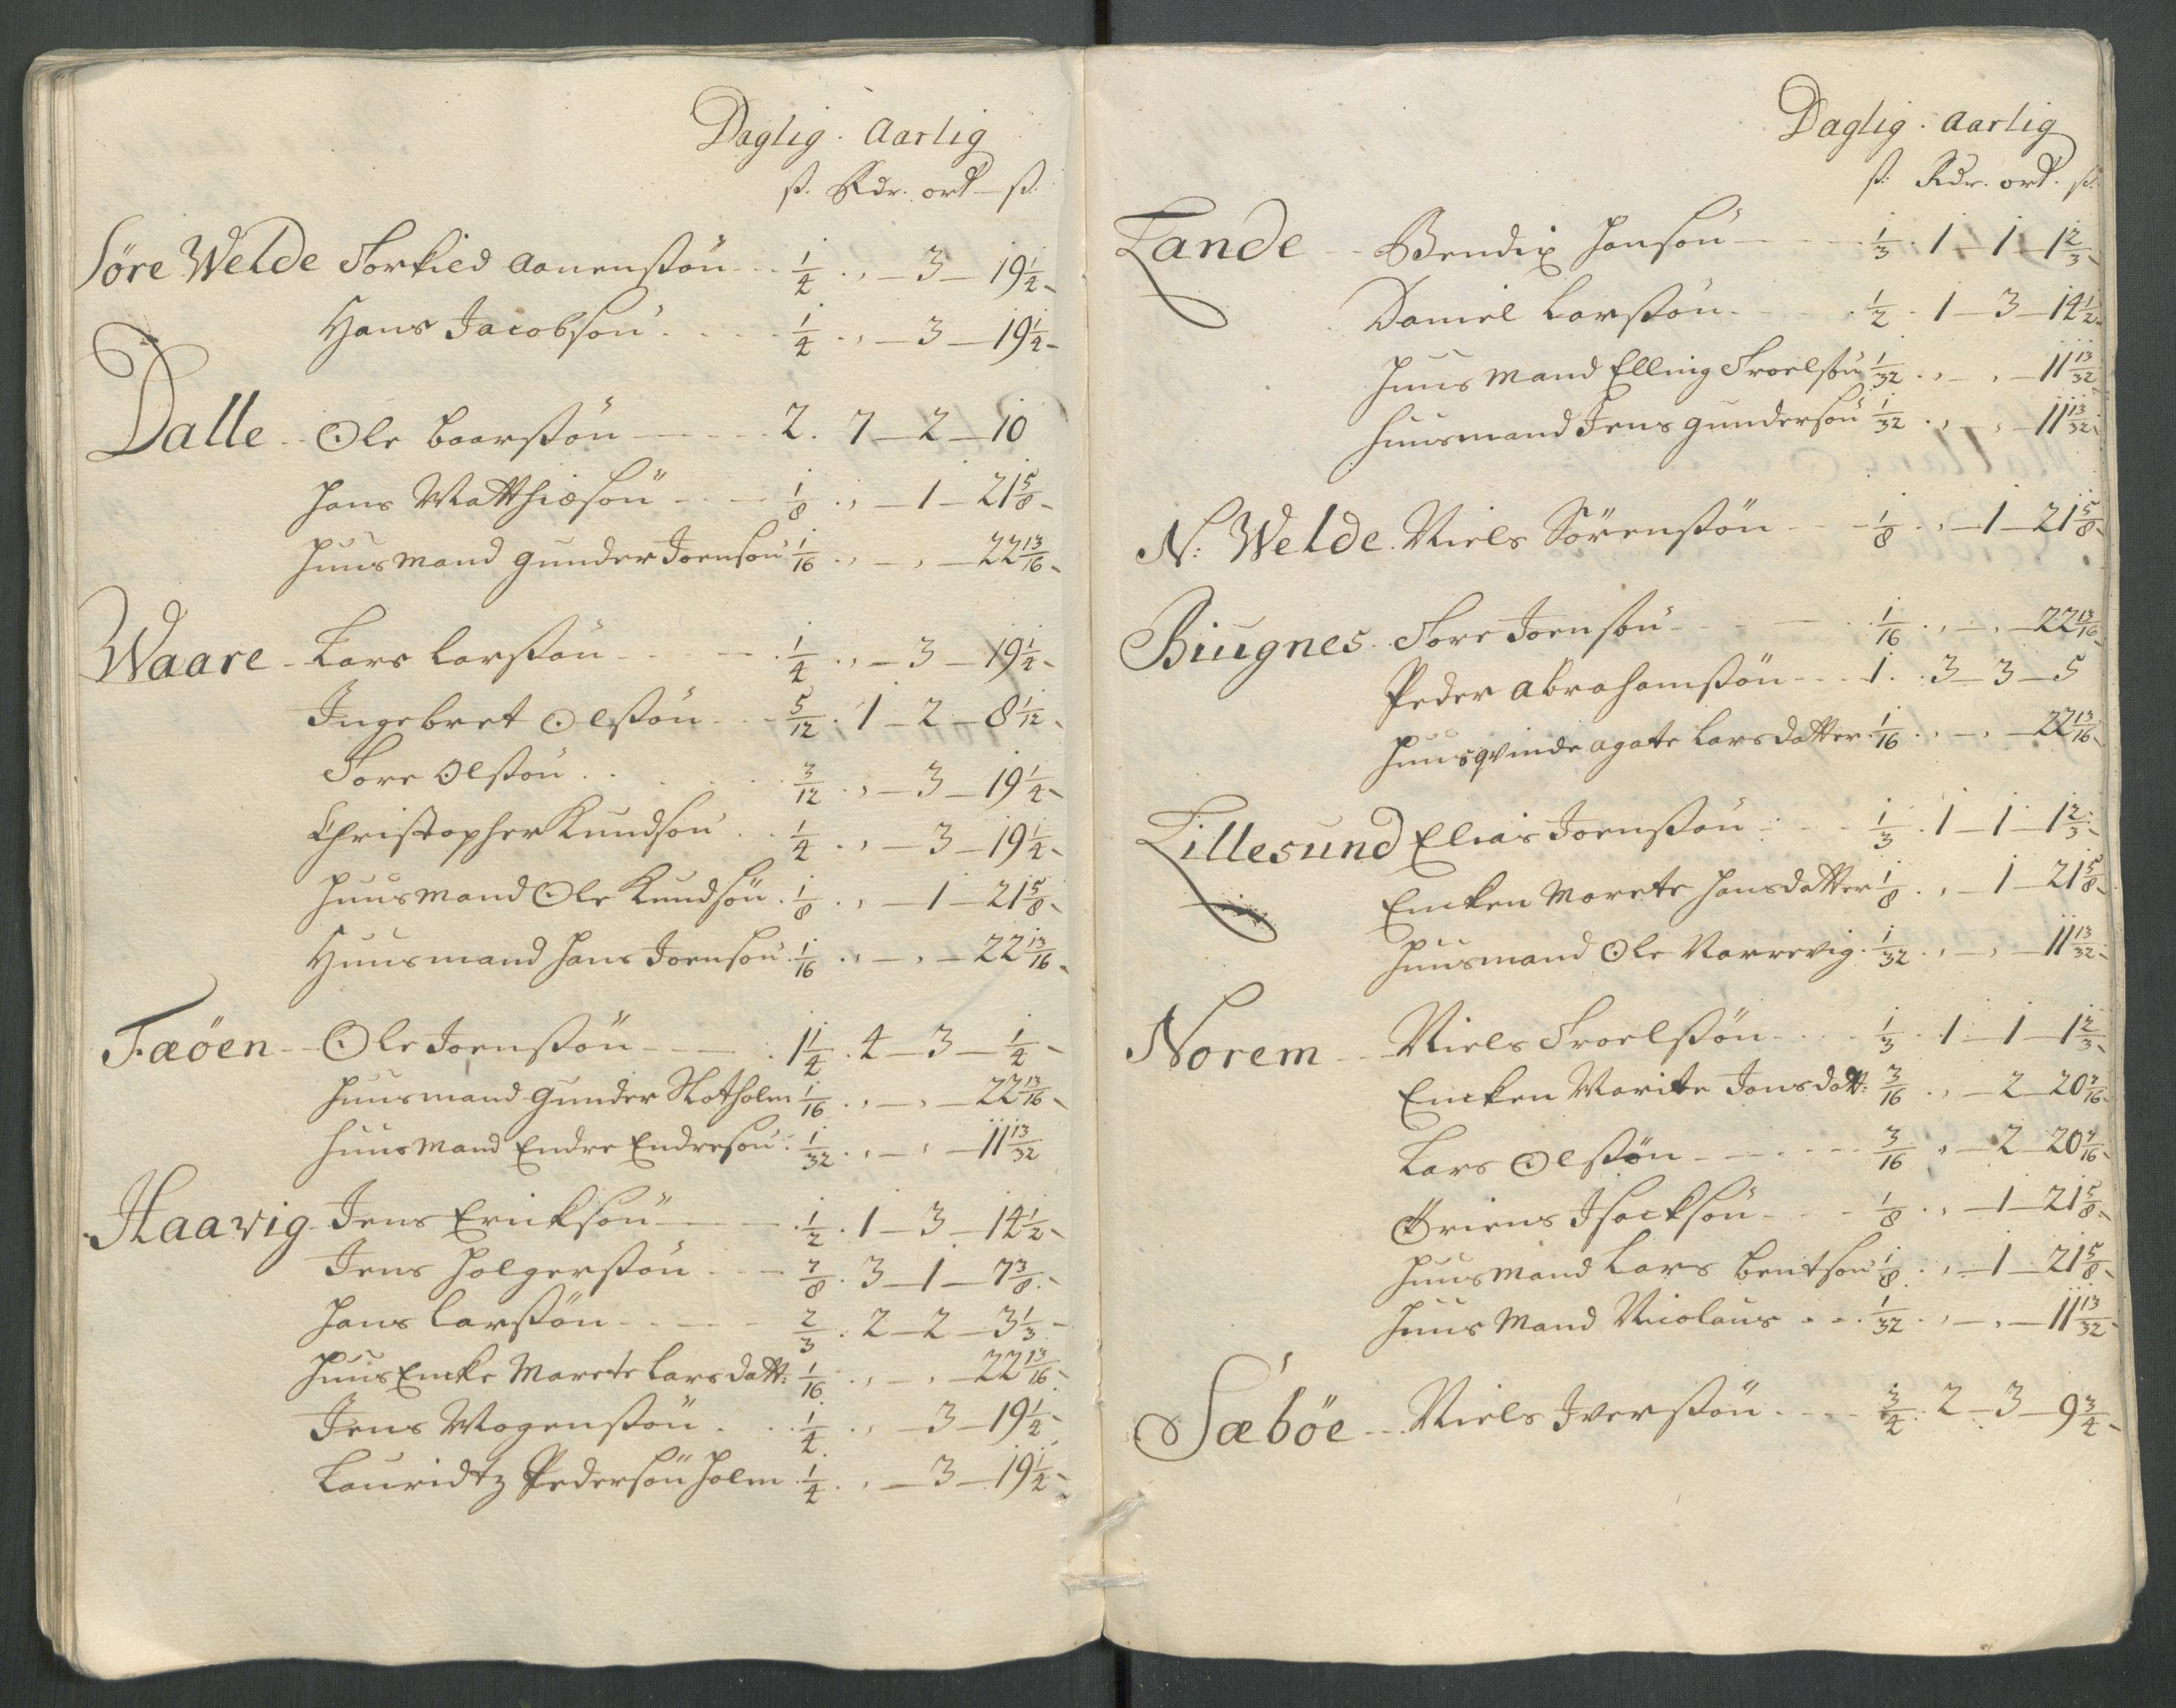 Daglig. Aarlig
ß. Rdr. ort - ß.
Söre Welde Torkied Aanenßön - - 1/4 . , - 3 - 19 1/4 -
Hans Jacobsön . . . . 1/4 . , - 3 - 19 1/4 -
Dalle - - Ole baarßön - - - 2. 7 - 2 - 10
Hans Matthiesön - - - 1/8 . , - 1 - 21 5/8 -
Huusmand gunder Joensön 1/16 . , - , - 22 13/16 -
Waare - Lars Larßön - - - 1/4 . , - 3 - 19 1/4 -
Ingebret Olßön - - - 5/12 . 1 - 2 - 8 1/12 -
Tore Olßön . . . . 3/12 . , - 3 - 19 1/4 -
Christopher Kundsön . . 1/4 . , - 3 - 19 1/4 -
Huusmand Ole Kundsön . 1/8 . , - 1 - 21 5/8 -
Huusmand Hans Joensön . 1/16 . , - , - 22 13/16 -
Fæöen - - Ole Joenßön - - - . 1 1/4 . 4 - 3 - 1/4 -
Huusmand Gunder Slotholm 1/16 . , - , - 22 13/16 -
Huusmand Endre Endresön . 1/32 . , - , - 11 13/32
Haavig - Jens Ericksön - - - 1/2 . 1 - 3 - 14 1/2 -
Jens Holgerßön - - - 7/8 . 3 - 1 - 7 3/8 -
Hans Larßön - - - 2/3 . 2 - 2 - 3 1/3 -
Huus Encke Marete Larsdatt: 1/16 . , - , - 22 13/16 -
Jens Mogenßön . . . 1/4 . , - 3 - 19 1/4 -
Lauridtz Pedersön Holm . 1/4 . , - 3 - 19 1/4 -
Daglig. Aarlig
ß: Rdr. ort. ß:
Lande - - Bendix Hansön - - - 1/3 . 1 - 1 - 1 2/3 -
Daniel Larßön . - - - 1/2 . 1 - 3 - 14 1/2 -
Huusmand Elling Troelsön 1/32 . , - , - 11 13/32
Huusmand Jens gundersön 1/32 . , - , - 11 13/32
N: Welde. Niels Sörenßön - - - 1/8 . , - 1 - 21 5/8 -
Biugnes . Tore Joensön - - - 1/16 . , - , - 22 13/16
Peder Abrahamßön - - - 1 . . 3 - 3 - 5
Huusqvinde Agate Larsdatter . 1/16 . , - , - 22 13/16
Lillesund Elias Joenßön . - - 1/3 . 1 - 1 - 1 2/3 -
Encken Marete Hansdatter 1/8 . , - 1 - 21 5/8
Huusmand Ole Narrevig . 1/32 . , - , - 11 13/32
Norem - - Niels Troelßön - . . . 1/3 . 1 - 1 - 1 2/3 -
Encken Marite Jonsdatt: 3/16 . , - 2 - 20 7/16
Lars Olßön - - - 3/16 , - 2 - 20 7/16
Briens Isacksön - - - 1/8 . , - 1 - 21 5/8 -
Huusmand Lars bentsön 1/8 . , - 1 - 21 5/8 -
Huusmand Nicolaus . . . 1/32 . , - , - 11 13/32
Sæböe - - Niels Iverßön . - - - 3/4 . 2 - 3 - 9 3/4 -